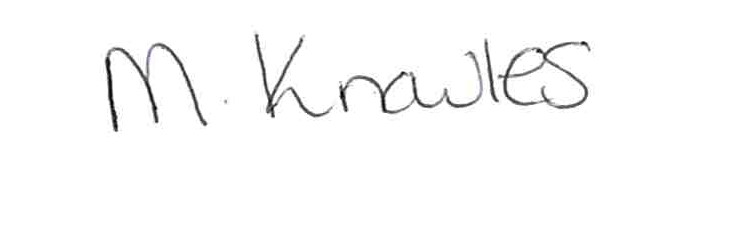 M. Knowles